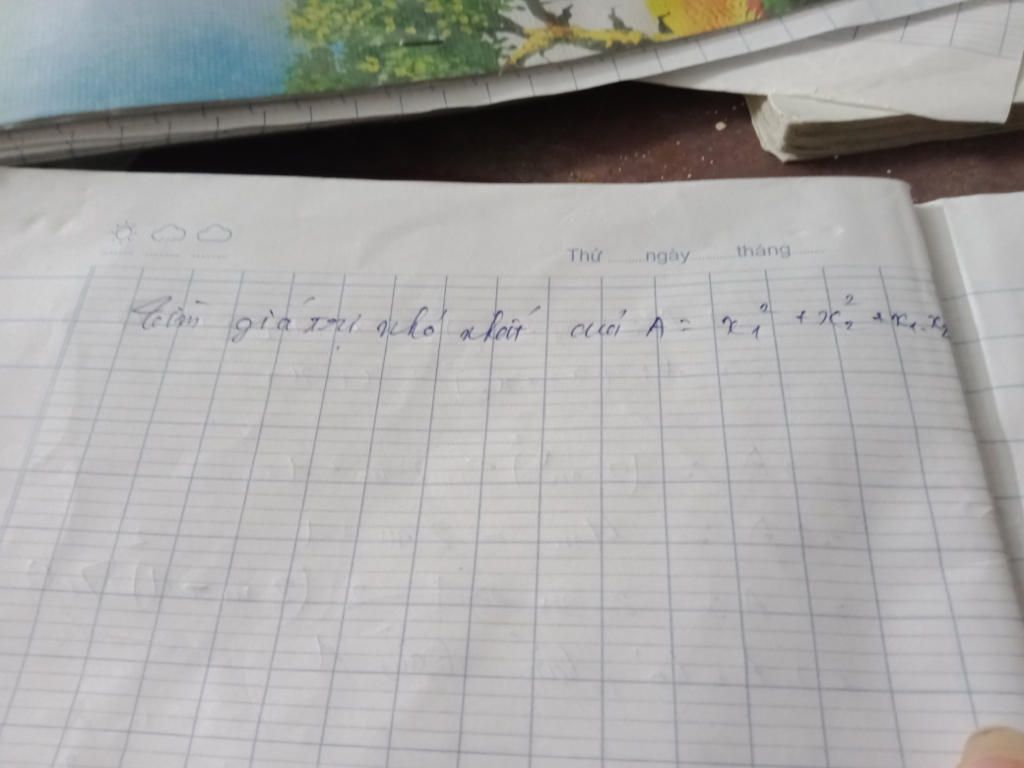 Thứ ......ngày..........tháng........
Tìm giá trị nhỏ nhất của A = x₁² + x₂² + x₁.x₂